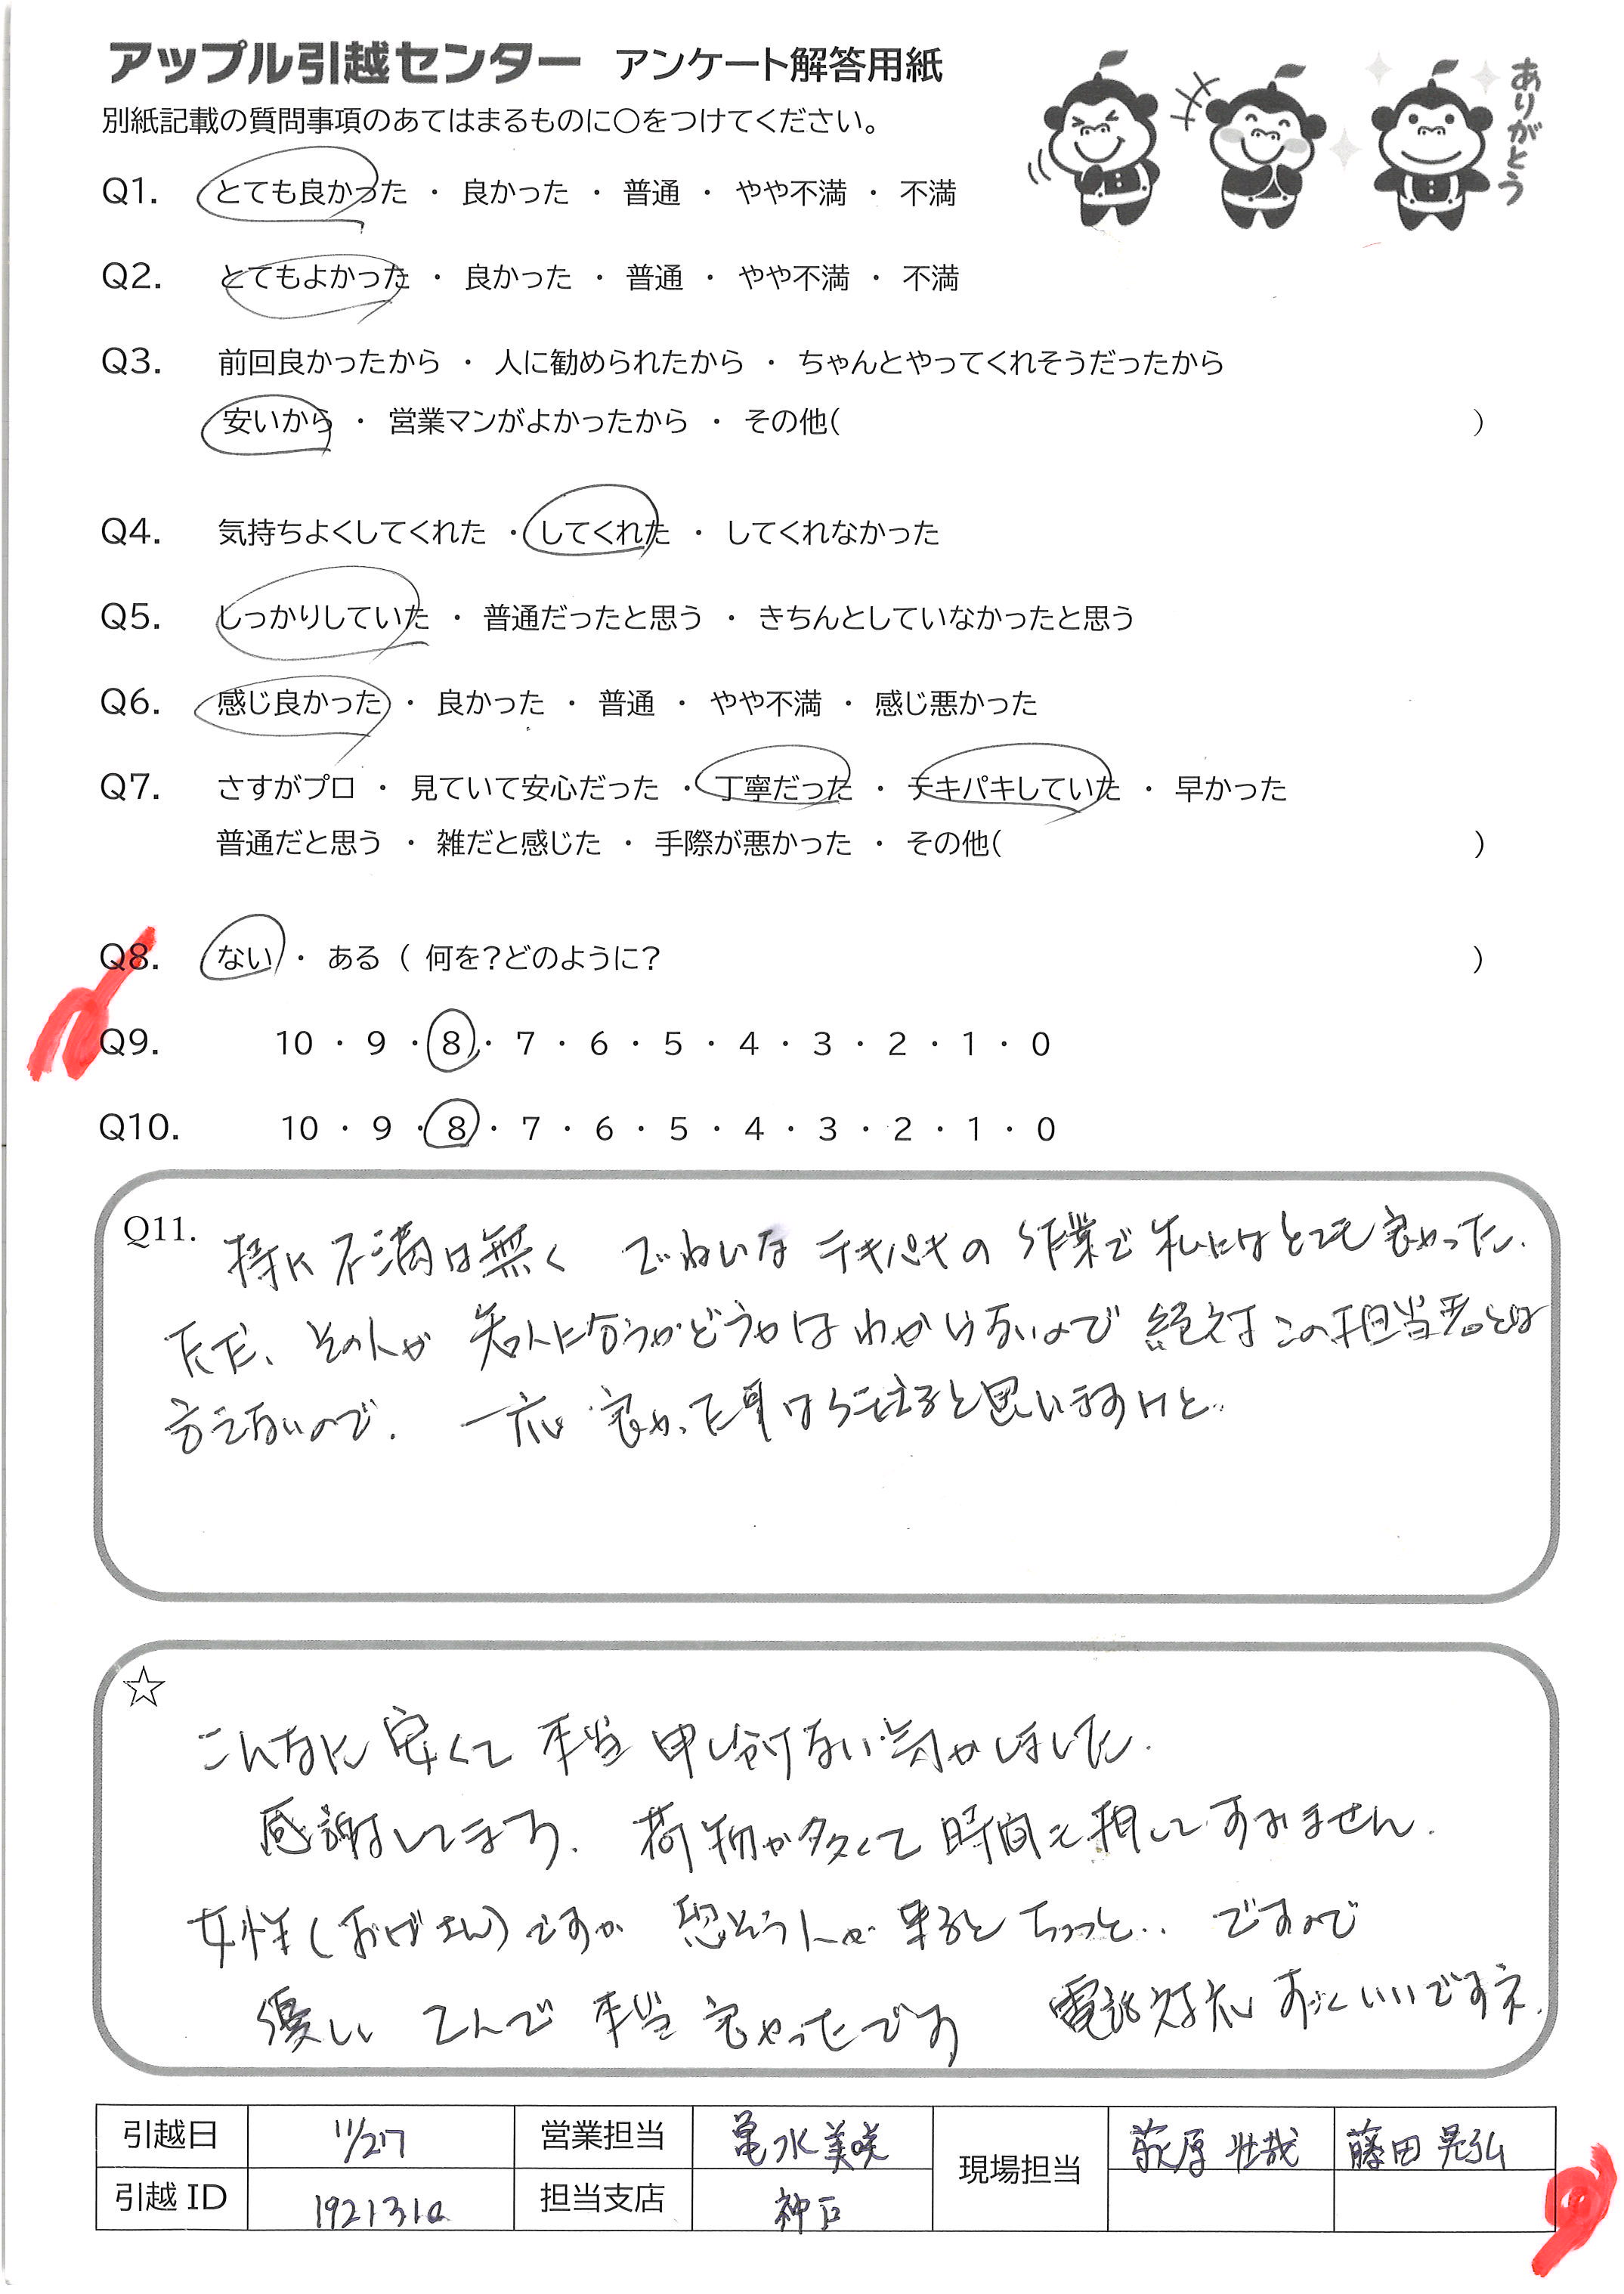 アップル引越センター アンケート解答用紙
ありがとう
別紙記載の質問事項のあてはまるものに○をつけてください。
Q1. とても良かった ・ 良かった ・ 普通 ・ やや不満 ・ 不満
Q2. とてもよかった ・ 良かった ・ 普通 ・ やや不満 ・ 不満
Q3. 前回良かったから ・ 人に勧められたから ・ ちゃんとやってくれそうだったから
安いから ・ 営業マンがよかったから ・ その他( )
Q4. 気持ちよくしてくれた ・ してくれた ・ してくれなかった
Q5. しっかりしていた ・ 普通だったと思う ・ きちんとしていなかったと思う
Q6. 感じ良かった ・ 良かった ・ 普通 ・ やや不満 ・ 感じ悪かった
Q7. さすがプロ ・ 見ていて安心だった ・ 丁寧だった ・ テキパキしていた ・ 早かった
普通だと思う ・ 雑だと感じた ・ 手際が悪かった ・ その他( )
Q8. ない ・ ある ( 何を?どのように? )
Q9. 10 ・ 9 ・ 8 ・ 7 ・ 6 ・ 5 ・ 4 ・ 3 ・ 2 ・ 1 ・ 0
Q10. 10 ・ 9 ・ 8 ・ 7 ・ 6 ・ 5 ・ 4 ・ 3 ・ 2 ・ 1 ・ 0
Q11. 特に不満は無く でねいな テキパキの作業で私にはとても良かった.
ただ、その人が 知人に合うかどうかはわからないので 絶対この担当者とは
言えないので. 一応 良かった事は伝えると思いますけど..
☆
こんなに安くて 本当 申し分けない気がしました.
感謝してます. 荷物が多くて時間を押してすみません.
女性(おばさん)ですが 恐そう人が来るとちょっと.. ですので
優しい てんで 本当 良かったです 電話対応 すごくいいですネ.
引越日 11/27 営業担当 亀水美咲 現場担当 荻原 壮哉 藤田 晃弘
引越ID 担当支店 神戸